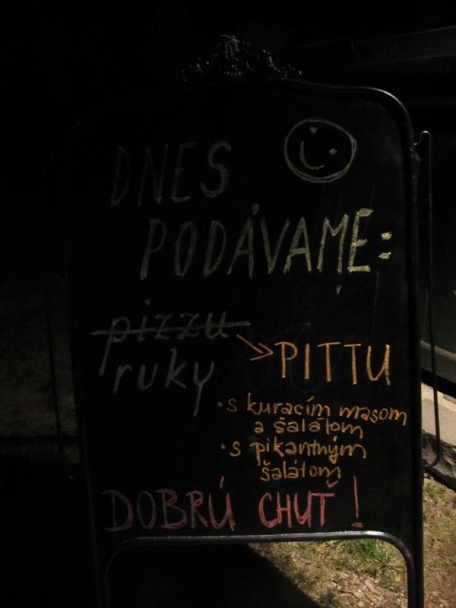 DNES
PODÁVAME:
pizzu
ruky
PITTU
· s kuracím masom
a šalátom
· s pikantným
šalátom
DOBRÚ CHUŤ!